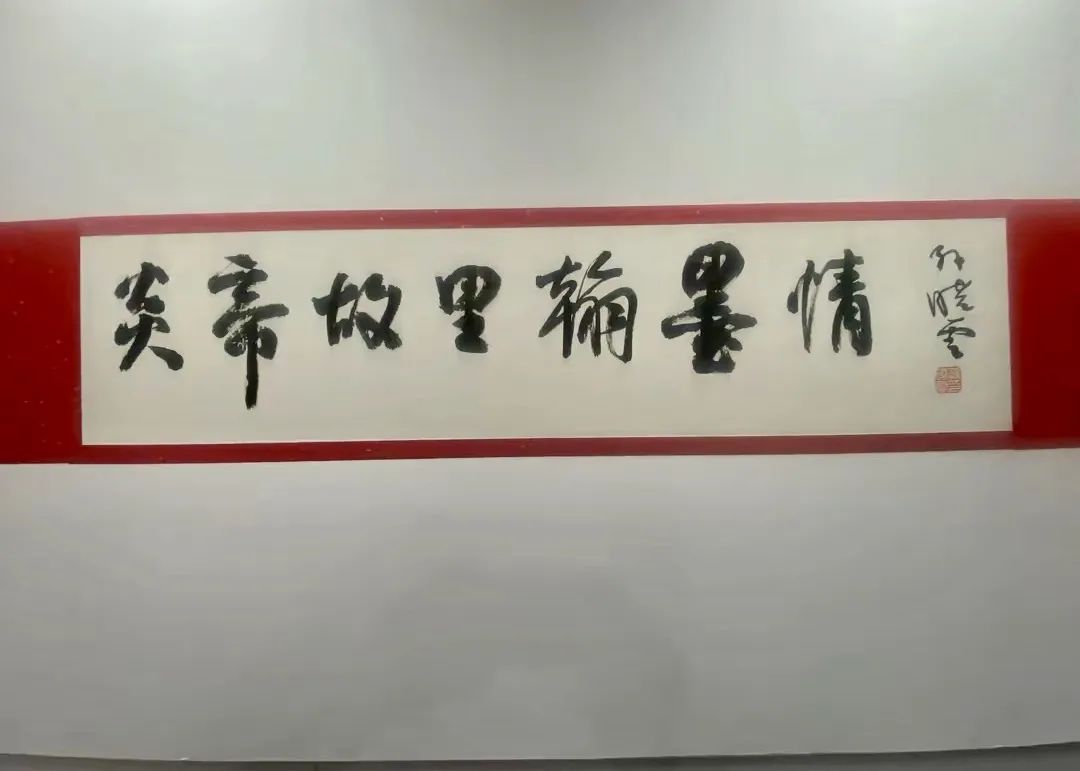 炎帝故里翰墨情
孙晓云